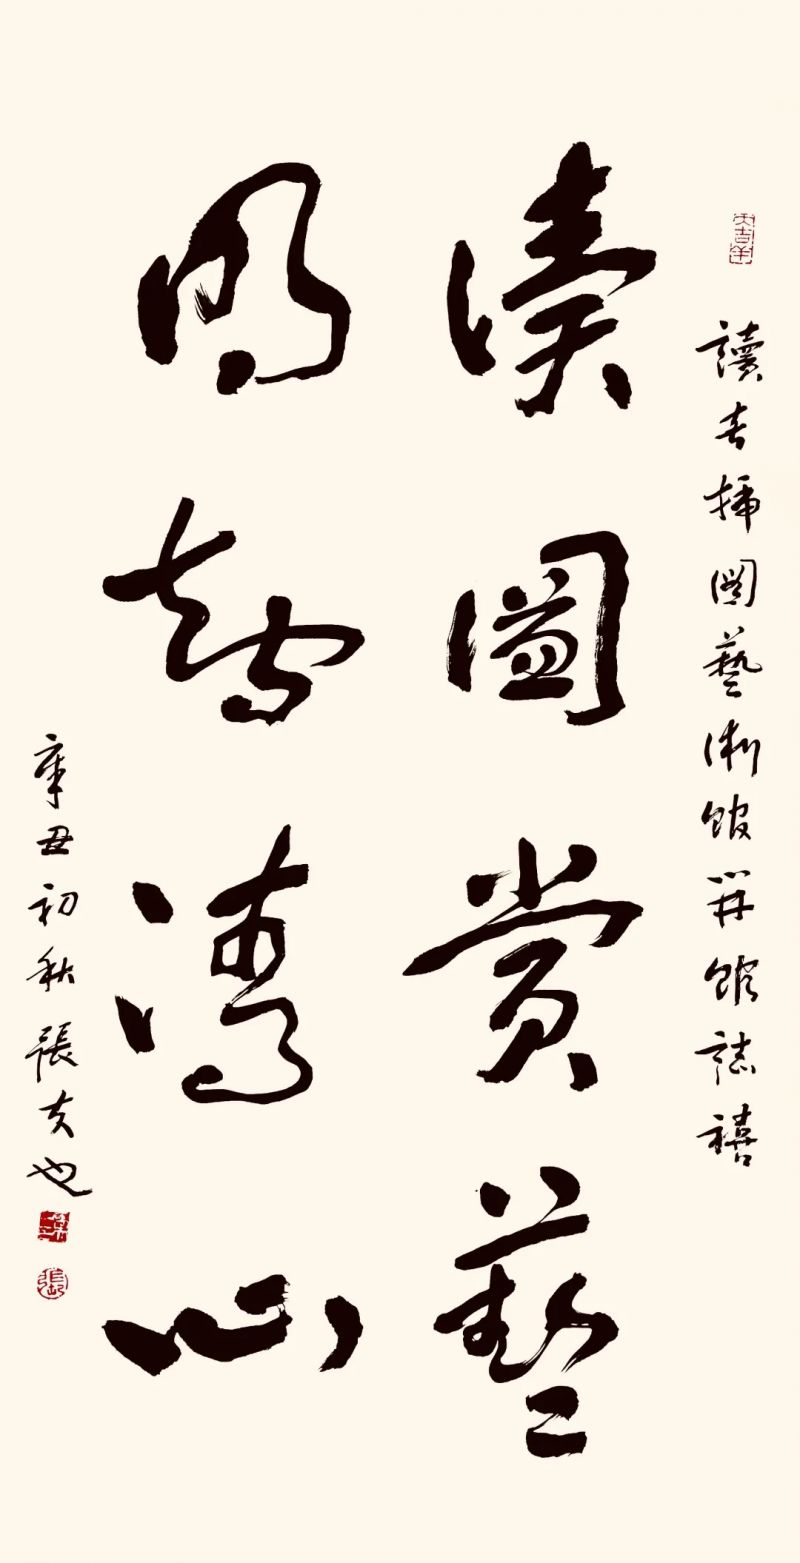 大吉羊
讀者插圖藝術館開館誌禧
讀圖賞藝
明智清心
辛丑初秋張